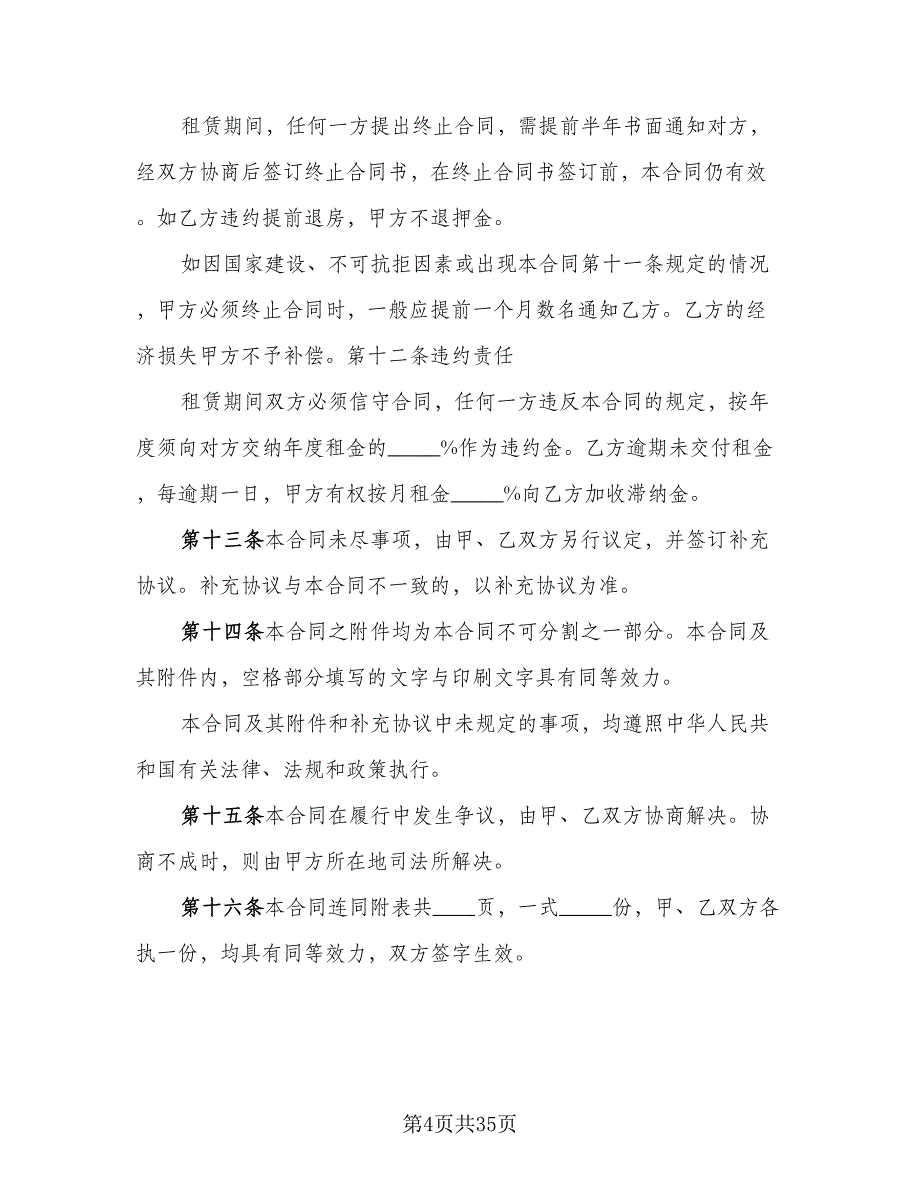 租赁期间，任何一方提出终止合同，需提前半年书面通知对方，
经双方协商后签订终止合同书，在终止合同书签订前，本合同仍有效
。如乙方违约提前退房，甲方不退押金。
如因国家建设、不可抗拒因素或出现本合同第十一条规定的情况
，甲方必须终止合同时，一般应提前一个月数名通知乙方。乙方的经
济损失甲方不予补偿。第十二条违约责任
租赁期间双方必须信守合同，任何一方违反本合同的规定，按年
度须向对方交纳年度租金的_____%作为违约金。乙方逾期未交付租金
，每逾期一日，甲方有权按月租金_____%向乙方加收滞纳金。
第十三条本合同未尽事项，由甲、乙双方另行议定，并签订补充
协议。补充协议与本合同不一致的，以补充协议为准。
第十四条本合同之附件均为本合同不可分割之一部分。本合同及
其附件内，空格部分填写的文字与印刷文字具有同等效力。
本合同及其附件和补充协议中未规定的事项，均遵照中华人民共
和国有关法律、法规和政策执行。
第十五条本合同在履行中发生争议，由甲、乙双方协商解决。协
商不成时，则由甲方所在地司法所解决。
第十六条本合同连同附表共____页，一式_____份，甲、乙双方各
执一份，均具有同等效力，双方签字生效。
第4页共35页